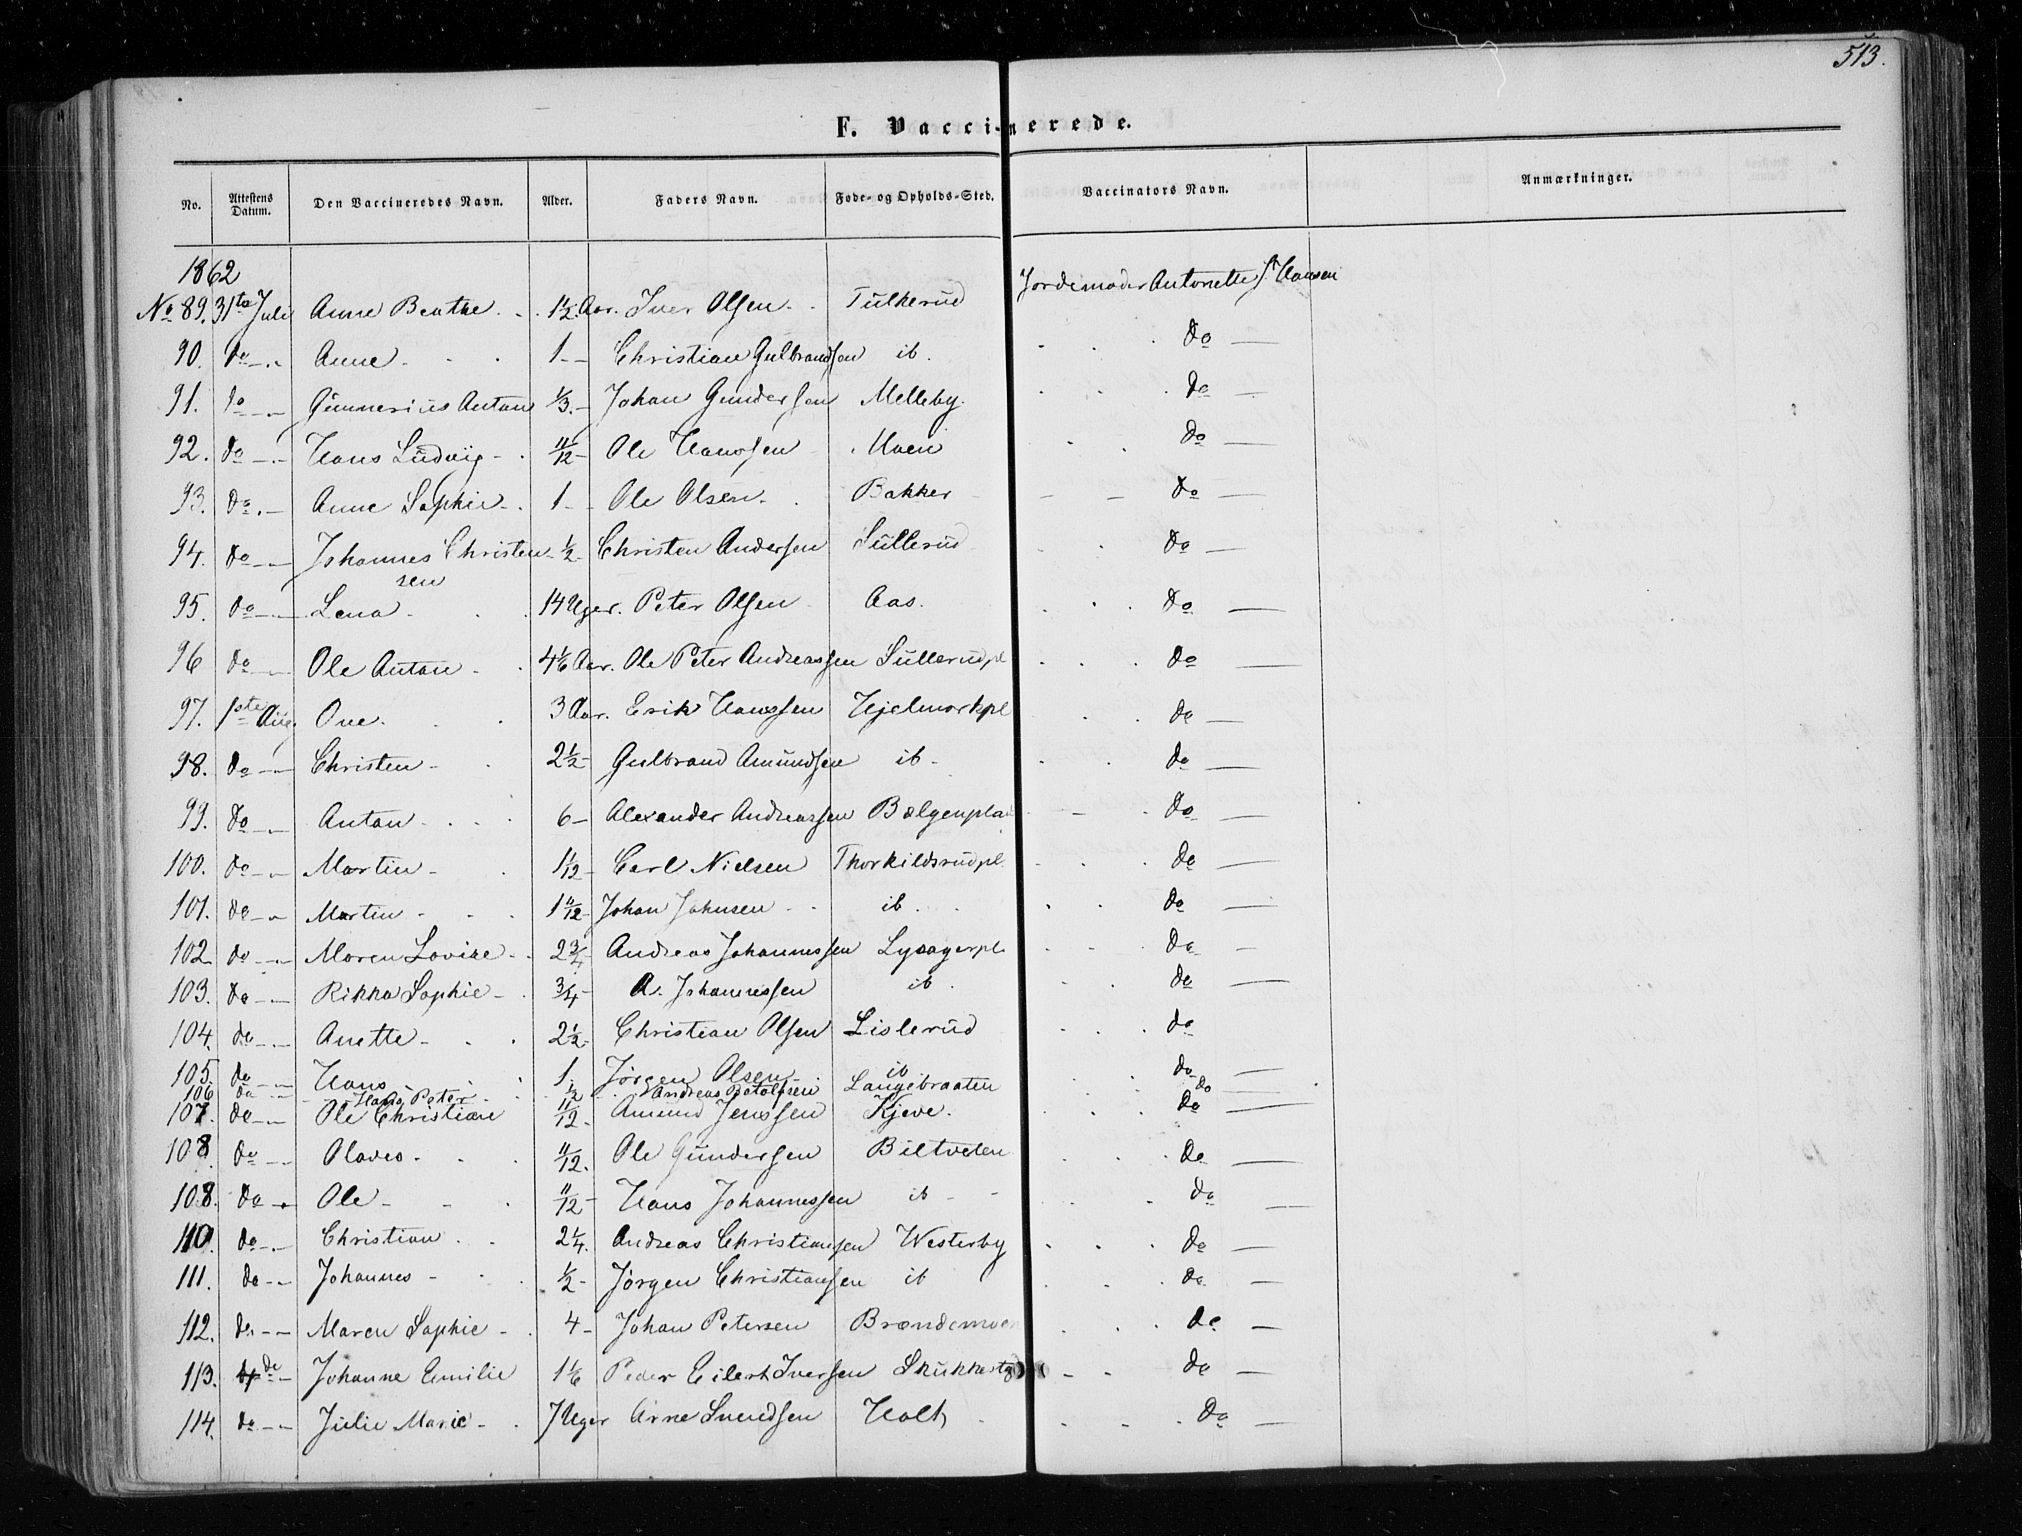 513.
F. Vaccinerede.
No. Attestens Datum. Den Vaccineredes Navn. Alder. Faders Navn. Føde- og Opholds-Sted. Vaccinators Navn. Anmærkninger.
1862
No 89. 31te Juli Anne Beathe 1 1/2 Aar. Iver Olsen Tulkerud Jordemoder Antonette Hansen
90. do Anne 1 Christian Gulbrandsen ib. do
91. do Gunnerius Anton 1/3 Johan Gundersen Melleby. do
92. do Hans Ludvig 11/12 Ole Hanssen Moen do
93. do Anne Sophie 1 Ole Olsen Bakker do
94. do Johannes Christensen 1/2 Christen Andersen Sullerud do
95. do Lena 14 Uger. Peter Olsen Aas. do
96 do Ole Anton 4 1/6 Aar. Ole Peter Andreassen Sullerudpl do
97. 1ste Aug. Ove 3 Aar. Erik Hanssen Hjelmarkpl do
98. do Christen 2 1/2 Gulbrand Amundsen ib do
99. do Anton 6 Alexander Andreassen Bælgenplad do
100. do Martin 1 1/12 Carl Nielsen Thorkildsrudpl do
101. do Martin 1 11/12 Johan Johnsen ib. do
102 do Maren Lovise 2 3/4 Andreas Johannessen Lysagerpl do
103. do Rikka Sophie 3/4 A. Johannessen ib. do
104. do Anette 2 1/2 Christian Olsen Lislerud do
105. do Hans 1 Jørgen Olsen ib do
106 do Hans Peter 1/2 Andreas Botolfsen Langebraaten do
107. do Ole Christian 11/12 Amund Jenssen Kjeve. do
108 do Olaves 11/12. Ole Gundersen Biltveten do
108. do Ole 11/12 Hans Johannessen ib do
110. do Christian 2 1/4. Andreas Christiansen Westerby do
111. do Johannes 1/2 Jørgen Christiansen ib do
112. do Maren Sophie 4 Johan Petersen Brændemoen do
113. do Johanne Emilie 1 1/6 Peder Eilert Iversen do
114. do Julie Marie 7 Uger Arne Svendsen Holt do